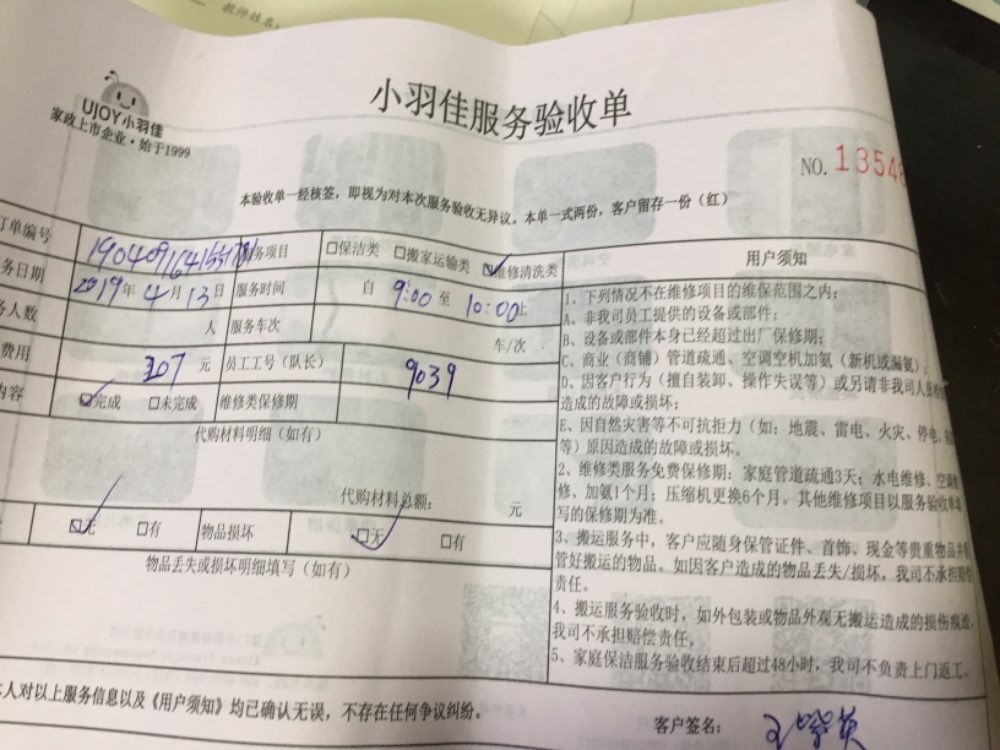 教师姓名:
UJOY小羽佳
家政上市企业·始于1999
小羽佳服务验收单
NO. 13548
本验收单一经核签，即视为对本次服务验收无异议。本单一式两份，客户留存一份（红）
订单编号 务项目 □保洁类 □搬家运输类 ☑维修清洗类
用户须知
务日期 2019年4月13日 服务时间 自 9:00 至 10:00止
务人数 人 服务车次 车/次
费用 307 元 员工工号（队长） 9039
内容 ☑完成 □未完成 维修类保修期
代购材料明细（如有）
代购材料总额: 元
☑无 □有 物品损坏 ☑无 □有
物品丢失或损坏明细填写（如有）
1、下列情况不在维修项目的维保范围之内:
A、非我司员工提供的设备或部件;
B、设备或部件本身已经超过出厂保修期;
C、商业（商铺）管道疏通、空调空机加氨（新机或漏氨）;
D、因客户行为（擅自装卸、操作失误等）或另请非我司人员
造成的故障或损坏;
E、因自然灾害等不可抗拒力（如: 地震、雷电、火灾、停电、
等）原因造成的故障或损坏。
2、维修类服务免费保修期: 家庭管道疏通3天; 水电维修、空调维
修、加氨1个月; 压缩机更换6个月。其他维修项目以服务验收单填
写的保修期为准。
3、搬运服务中，客户应随身保管证件、首饰、现金等贵重物品并
管好搬运的物品。如因客户造成的物品丢失/损坏，我司不承担赔偿
责任。
4、搬运服务验收时，如外包装或物品外观无搬运造成的损伤痕迹，
我司不承担赔偿责任。
5、家庭保洁服务验收结束后超过48小时，我司不负责上门返工。
本人对以上服务信息以及《用户须知》均已确认无误，不存在任何争议纠纷。
客户签名: